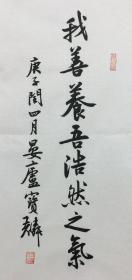 我善養吾浩然之氣
庚子閏四月晏廬寶麟